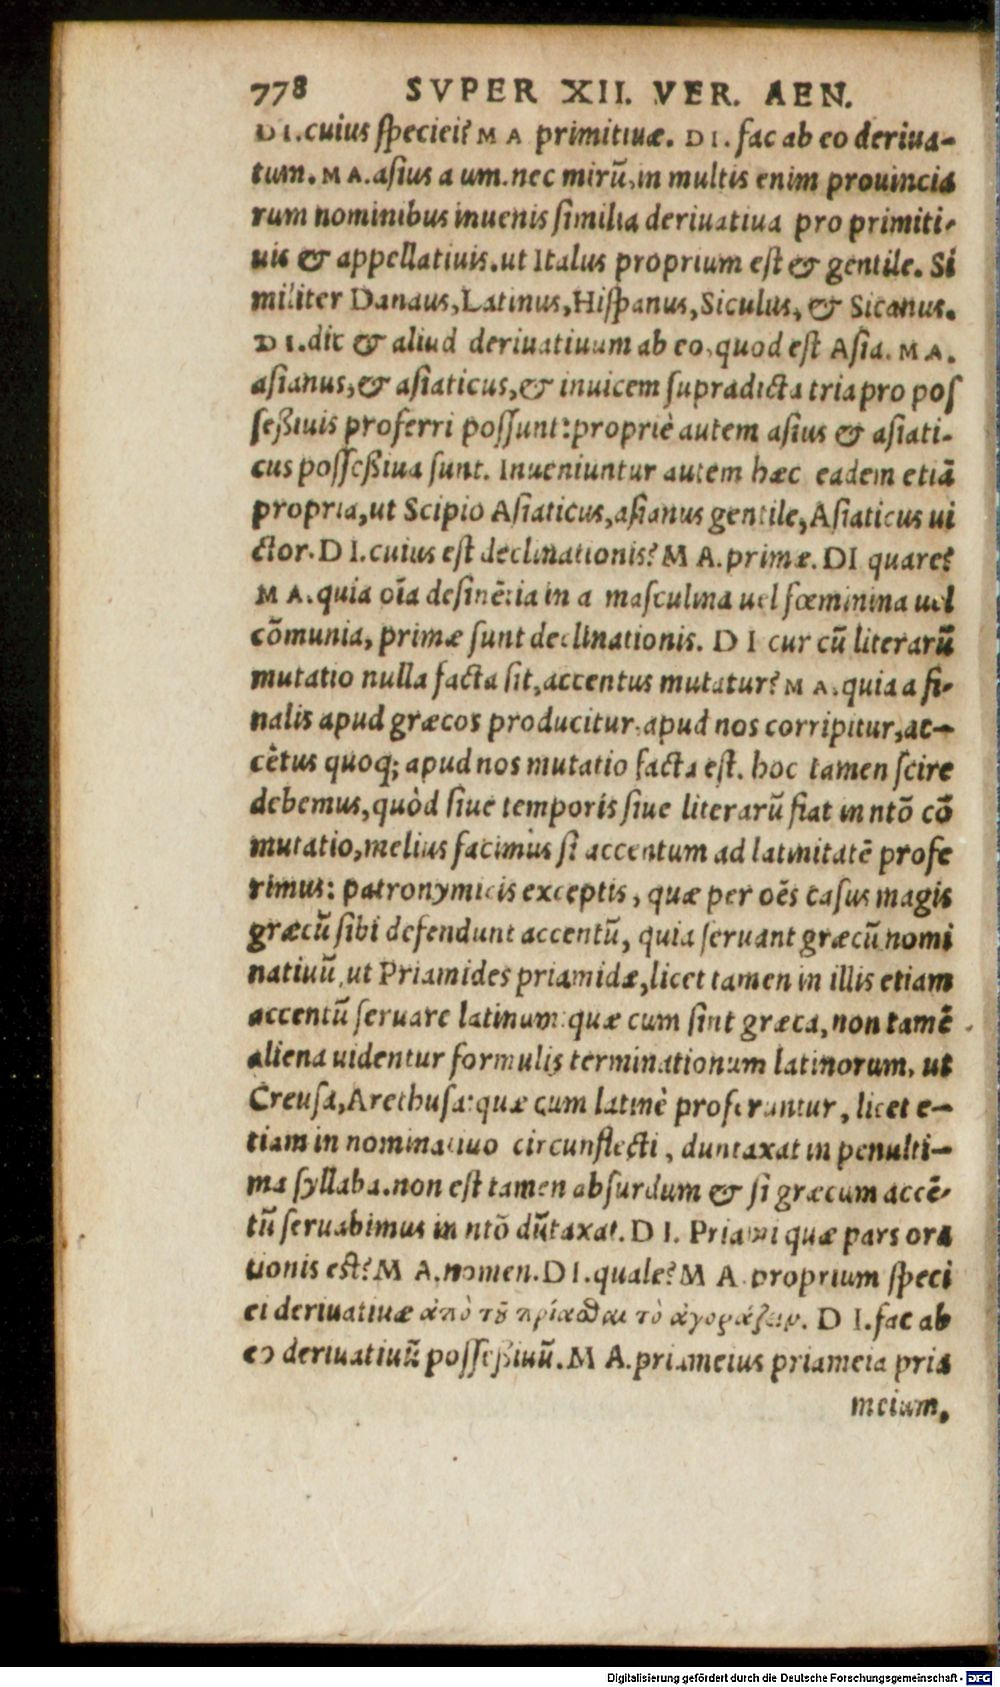 778 SVPER XII. VER. AEN.
DI.cuius speciei? MA primitiuæ. DI. fac ab eo deriua-
tum. MA. asius a um. nec mirū, in multis enim prouincia
rum nominibus inuenis similia deriuatiua pro primiti-
uis & appellatiuis. ut Italus proprium est & gentile. Si
militer Danaus, Latinus, Hispanus, Siculus, & Sicanus.
DI. dic & aliud deriuatiuum ab eo, quod est Asia. MA.
asianus, & asiaticus, & inuicem supradicta tria pro pos
seßiuis proferri possunt: propriè autem asius & asiati-
cus posseßiua sunt. Inueniuntur autem hæc eadem etiā
propria, ut Scipio Asiaticus, asianus gentile, Asiaticus ui
ctor. DI. cuius est declinationis? MA. primæ. DI quare?
MA. quia oīa desinētia in a masculina uel fœminina uel
cōmunia, primæ sunt declinationis. DI cur cū literarū
mutatio nulla facta sit, accentus mutatur? MA. quia a fi-
nalis apud græcos producitur, apud nos corripitur, ac-
cētus quoq; apud nos mutatio facta est. hoc tamen scire
debemus, quòd siue temporis siue literarū fiat in ntō cō
mutatio, melius facimus si accentum ad latinitatē profe
rimus: patronymicis exceptis, quæ per oēs casus magis
græcū sibi defendunt accentū, quia seruant græcū nomi
natiuū, ut Priamides priamidæ, licet tamen in illis etiam
accentū seruare latinum: quæ cum sint græca, non tamē
aliena uidentur formulis terminationum latinorum. ut
Creusa, Arethusa: quæ cum latinè proferuntur, licet e-
tiam in nominatiuo circunflecti, duntaxat in penulti-
ma syllaba. non est tamen absurdum & si græcum accē-
tū seruabimus in ntō dūtaxat. DI. Priami quæ pars ora
tionis est? MA. nomen. DI. quale? MA proprium speci
ei deriuatiuæ ἀπὸ τοῦ πρίαϑαι τὸ ἀγοράζειν. DI. fac ab
eo deriuatiuū posseßiuū. MA. priameius priameia pria
meium.
Digitalisierung gefördert durch die Deutsche Forschungsgemeinschaft - DFG